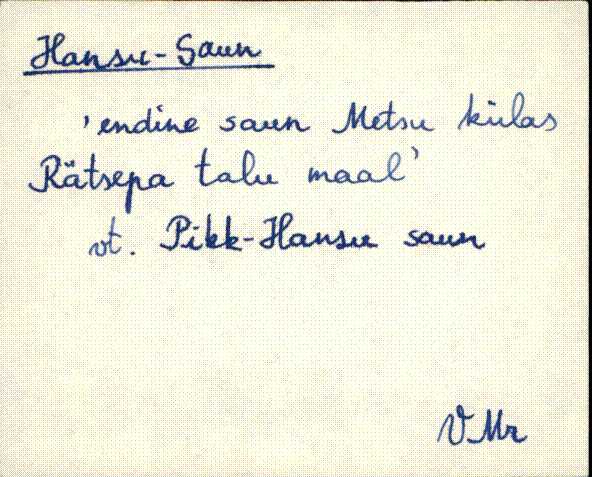 Hansu-Saun
'endine saun Metsu külas
Rätsepa talu maal'
vt. Pikk-Hansu saun
VMr